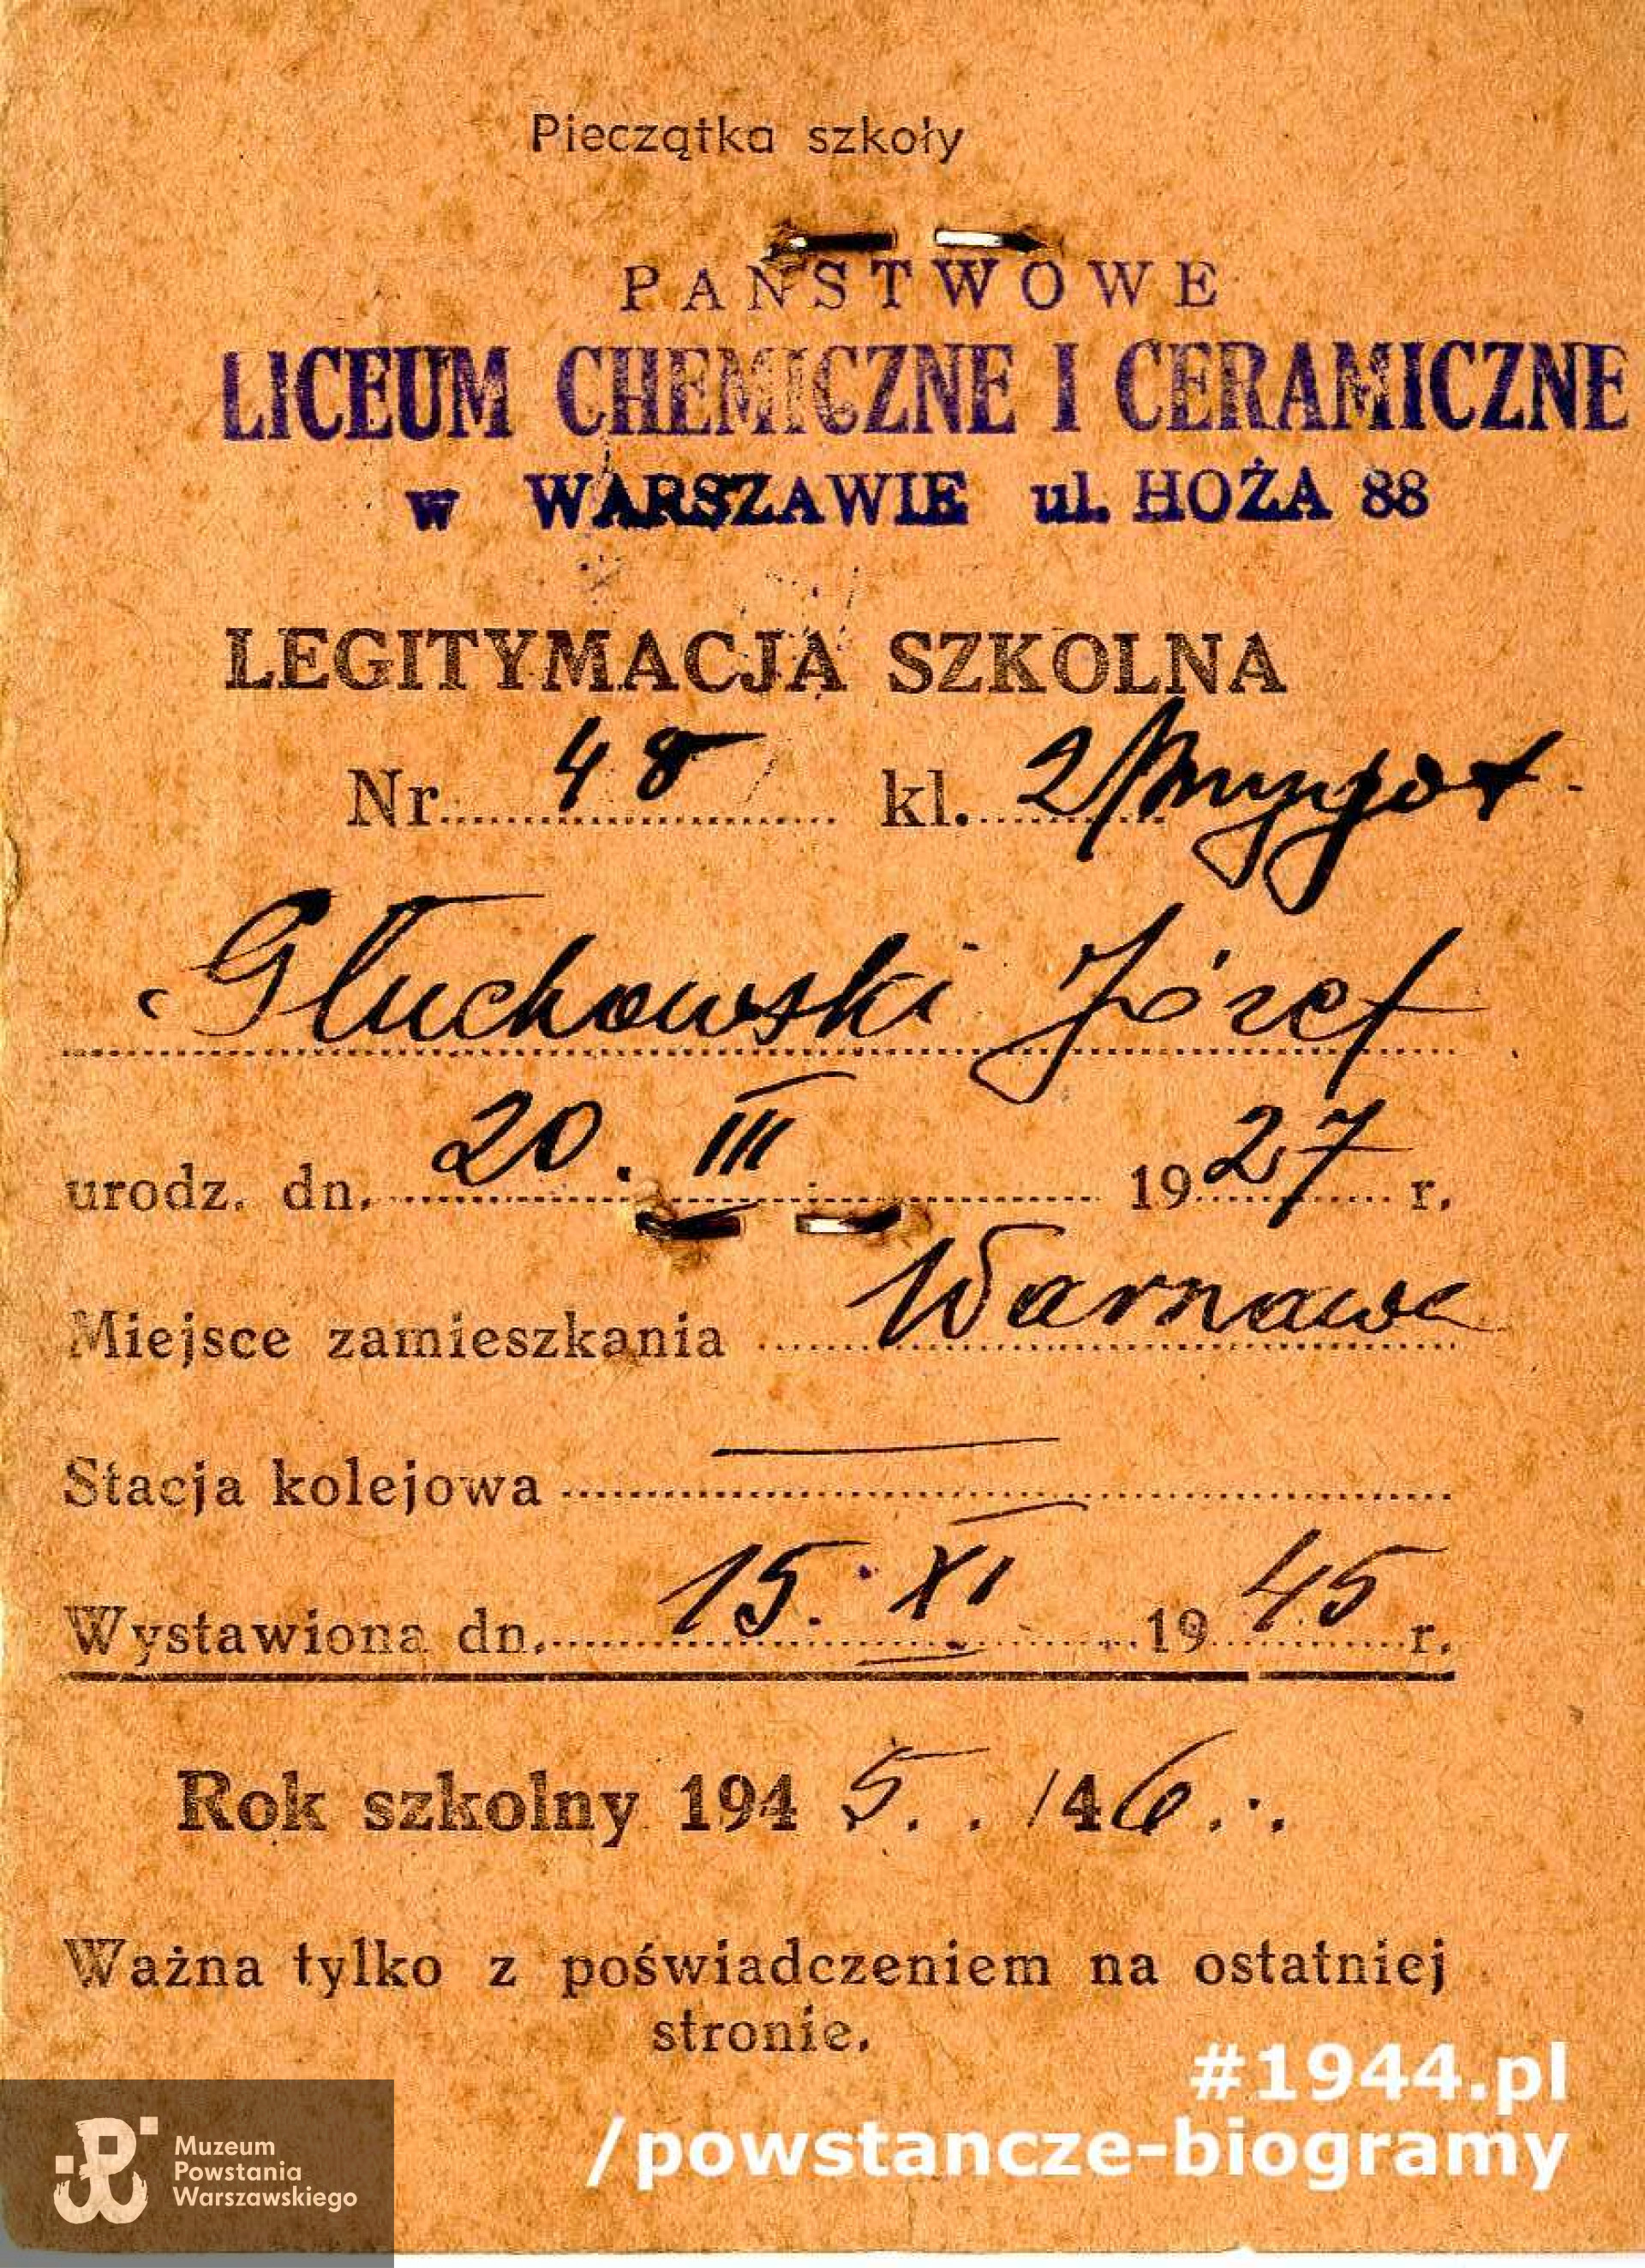 Pieczątka szkoły
PAŃSTWOWE
LICEUM CHEMICZNE I CERAMICZNE
w WARSZAWIE ul. HOŻA 88
LEGITYMACJA SZKOLNA
Nr 48 kl. 2/
Głuchowski Józef
urodz. dn. 20. III 1927 r.
Miejsce zamieszkania Warszawa
Stacja kolejowa —
Wystawiona dn. 15. XI 1945 r.
Rok szkolny 1945./46.
Ważna tylko z poświadczeniem na ostatniej
stronie.
#1944.pl
/powstancze-biogramy
Muzeum
Powstania
Warszawskiego